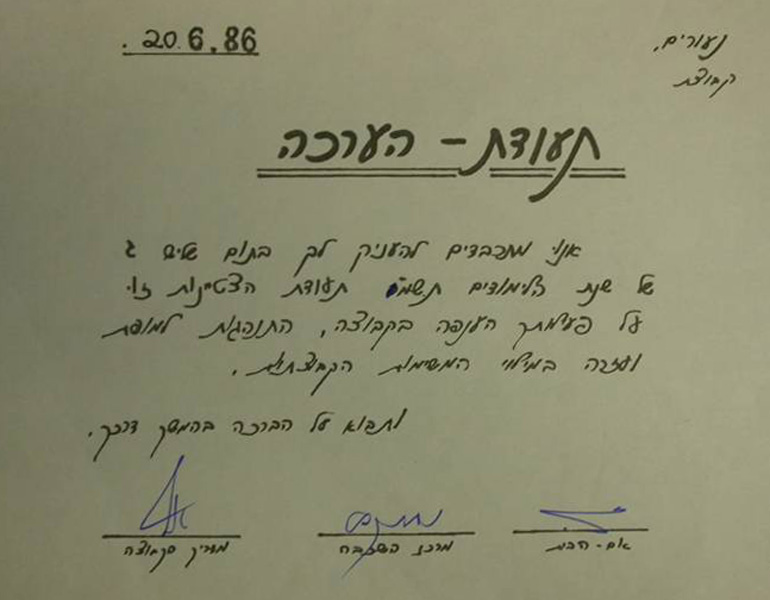 20.6.86.
נעורים,
קבוצת
תעודת - הערכה
אנו מתכבדים להעניק לך בתום שליש ג
של שנת הלימודים תשמ"ו תעודת הצטיינות זו.
על פעילותך הענפה בקבוצה, התנהגות למופת
ועזרה במילוי המשימות הקבוצתיות.
ותבוא על הברכה בהמשך דרכך.
אם-הבית
מרכז השכבה
מדריך הקבוצה